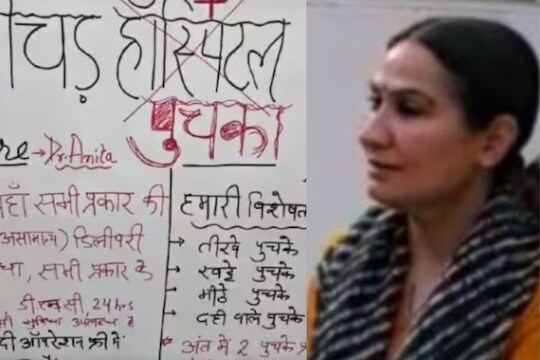 चिड़ हॉस्पिटल
पुचका
re → Dr. Anita
हाँ सभी प्रकार की
असामान्य) डिलीवरी
था, सभी प्रकार के
डी एन सी 24 hrs
सुविधा उपलब्ध है
दी ऑपरेशन फ्री में
हमारी विशेषत
→ तीखे पुचके
→ खट्टे पुचके
→ मीठे पुचके
→ दही वाले पुचके
* अंत में 2 पुचके फ्र